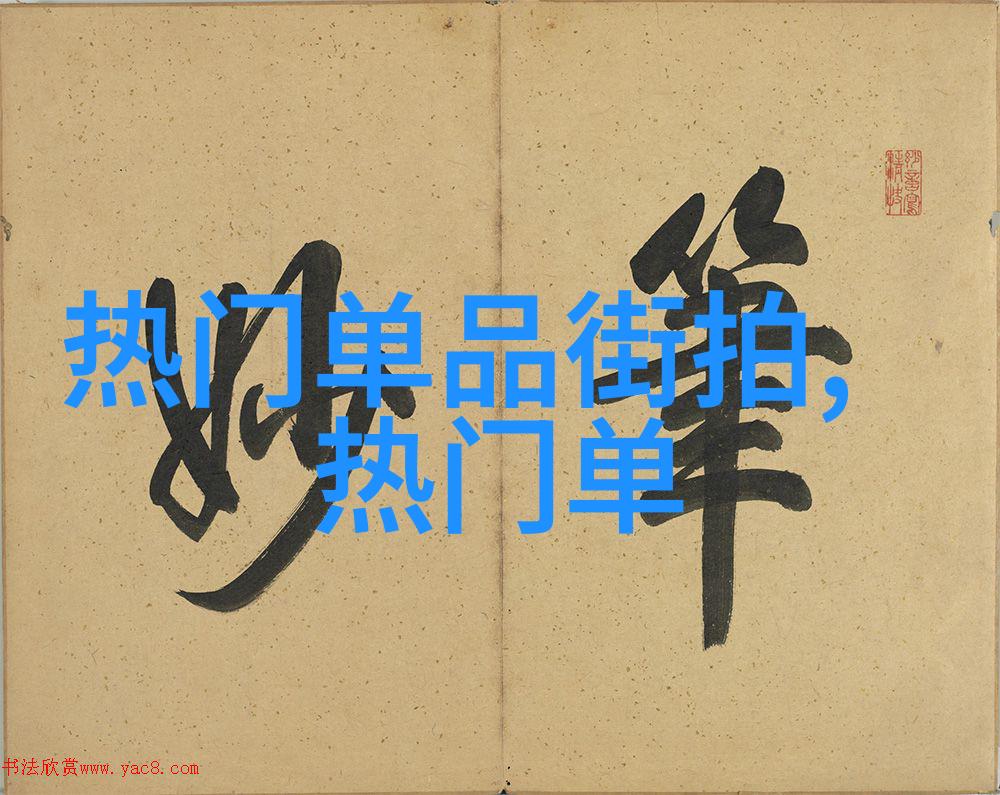 筆
妙
热门单品街拍,
热门单
书法欣赏www.yac8.com